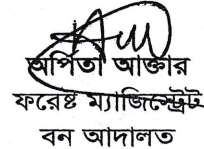 অর্পিতা আক্তার
ফরেষ্ট ম্যাজিস্ট্রেট
বন আদালত